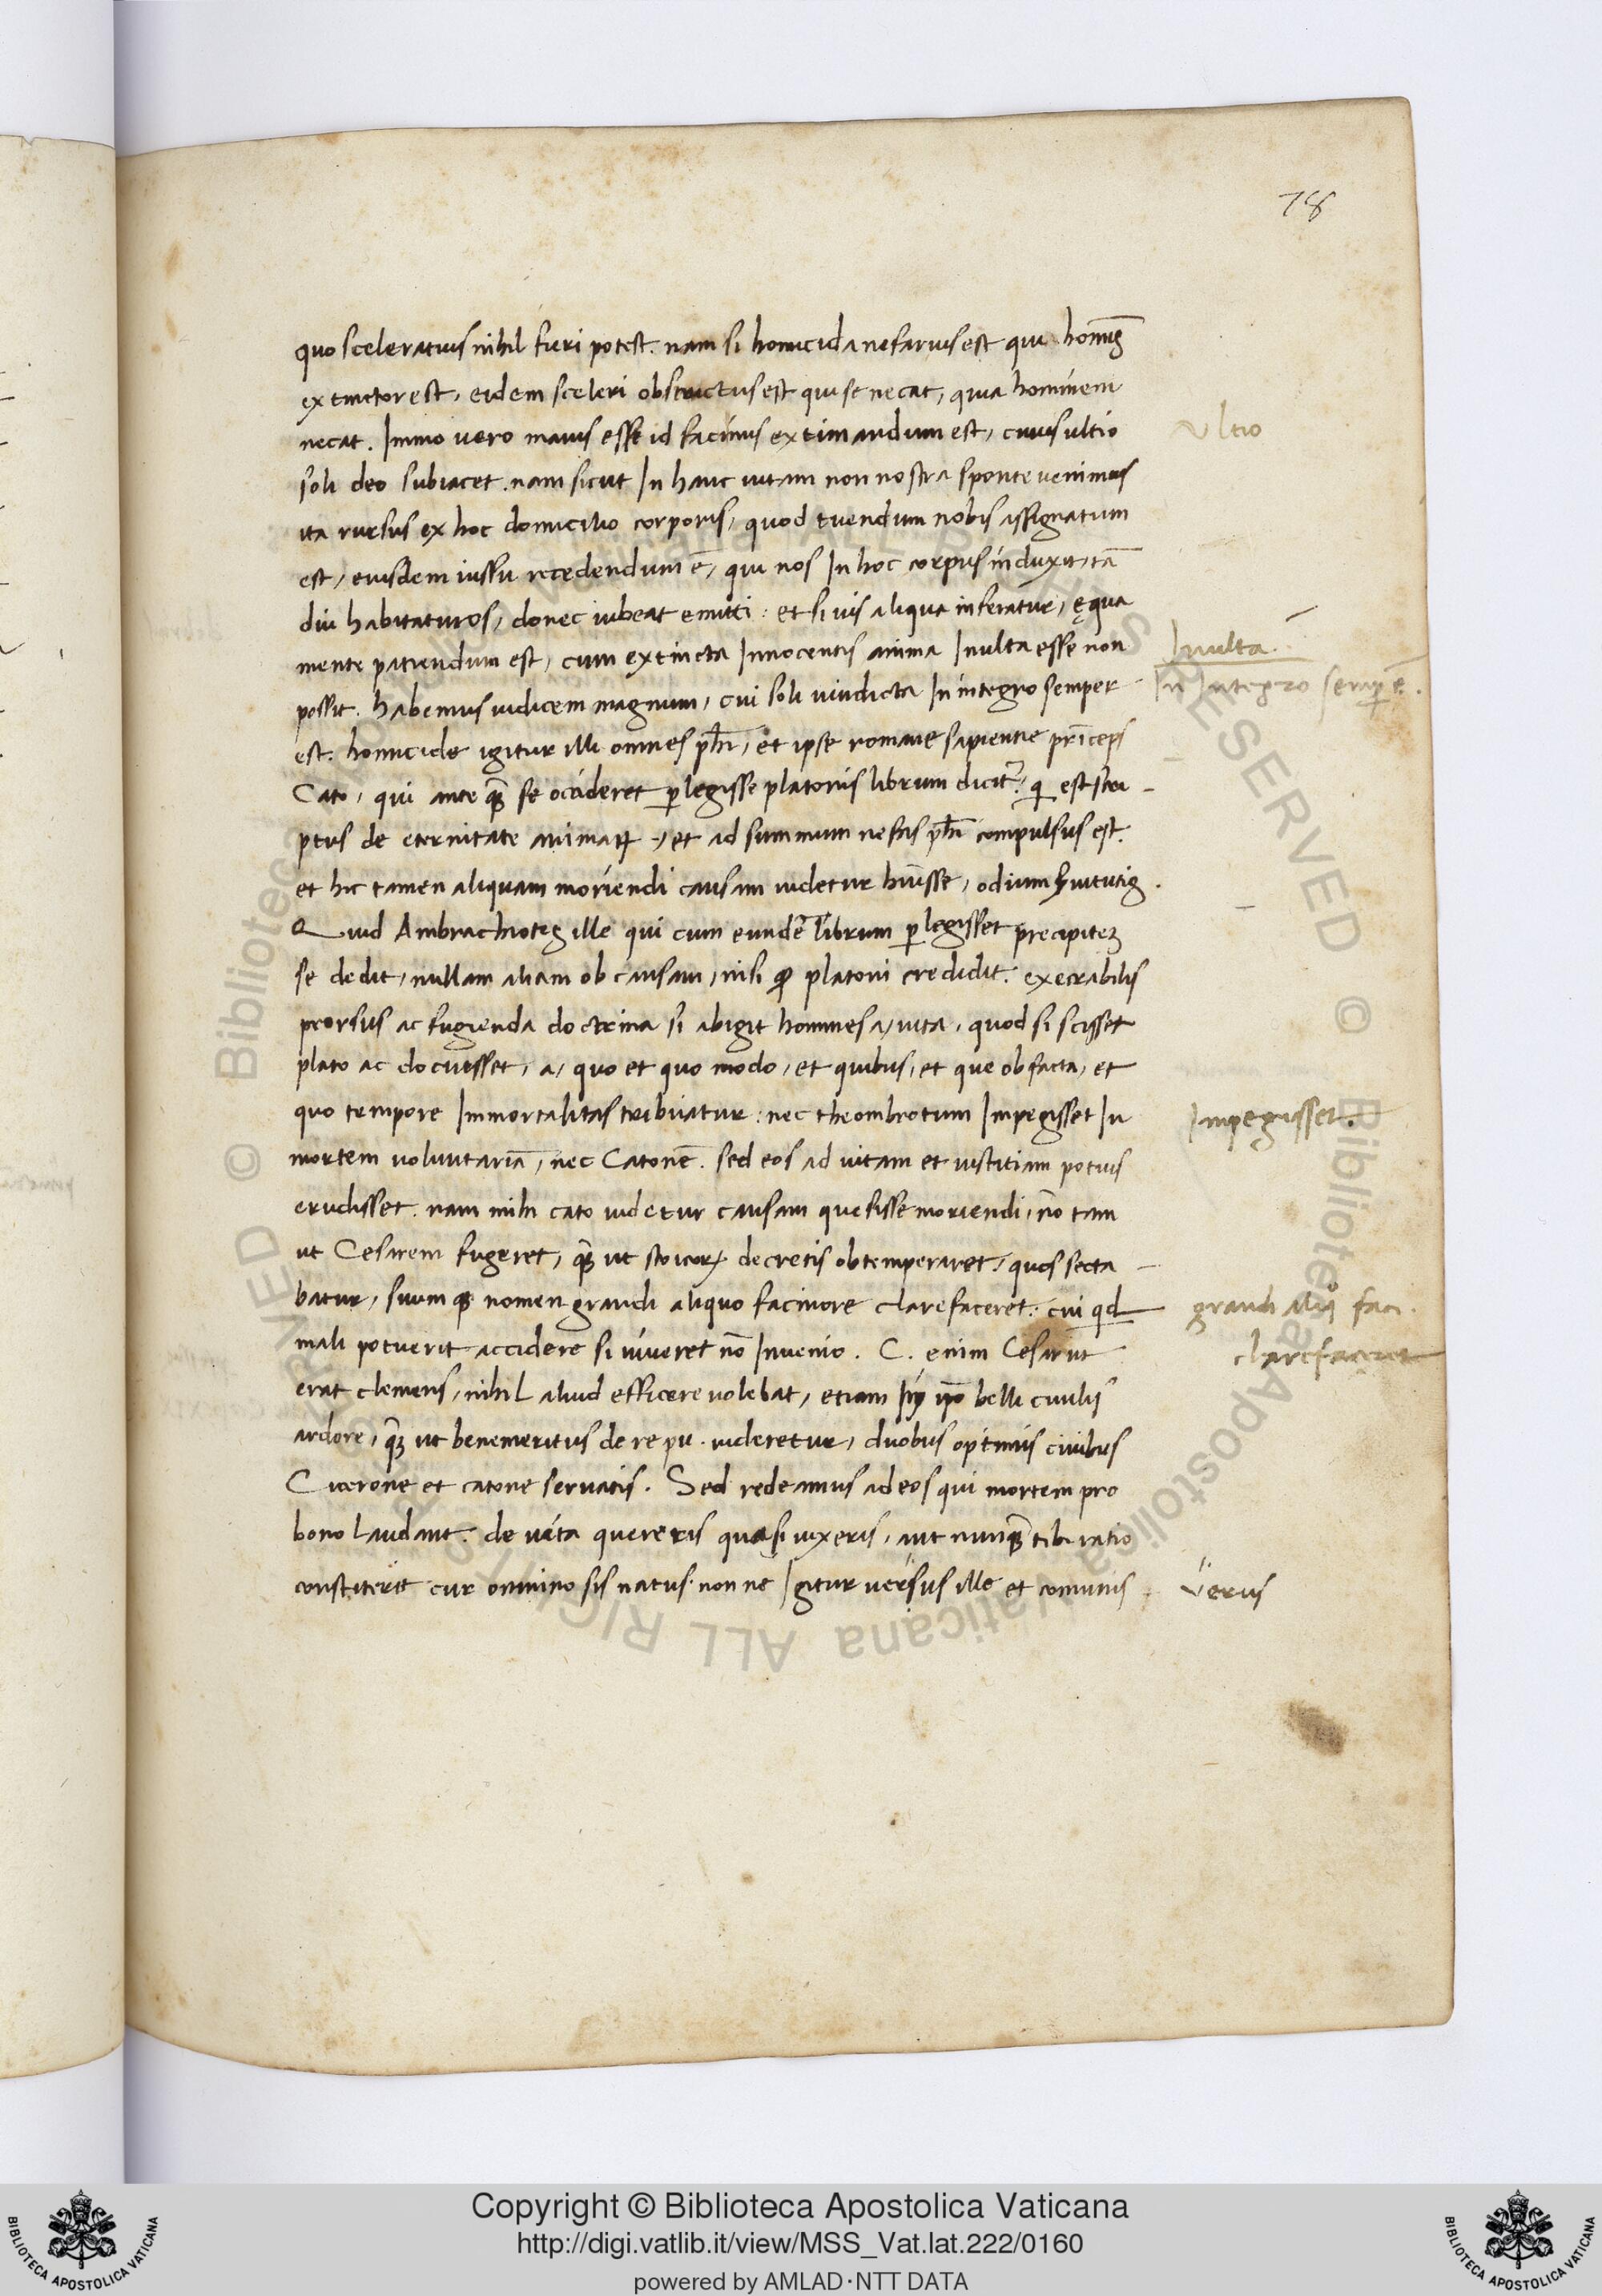 78
quo sceleratius nihil fieri potest. nam si homicida nefarius est qui hoīnis
extinctor est, eidem sceleri obstrictus est qui se necat, quia hominem
necat. Immo vero maius esse id facinus extimandum est, cuius ultio
Vltio
soli deo subiacet. nam sicut In hanc vitam non nostra sponte venimus
ita rursus ex hoc domicilio corporis, quod tuendum nobis assignatum
est, eiusdem iussu recedendum ē, qui nos In hoc corpus induxit, tā
diu habitaturos, donec iubeat emitti: et si vis aliqua inferatur, ęqua
mente patiendum est, cum extincta Innocentis anima Inulta esse non
Inulta.
possit. habemus iudicem magnum, cui soli vindicta In integro semper
In Integro semp ē.
est. homicide igitur illi omnes phi̅, et ipse romane sapientie prīceps
Cato, qui ante qͣ se occideret plegisse platonis librum dicit͛. qi est scri-
ptus de eternitate animaꝝ, et ad summum nefas phi̅ compulsus est.
et hic tamen aliquam moriendi causam videtur hūisse, odium ẜuitutis.
Quid Ambrachiotes ille qui cum eundē librum plegisset precipitez
se dedit, nullam aliam ob causam, nisi qđ platoni credidit. execrabilis
prorsus ac fugienda doctrina si abigit homines a, vita. quod si scisset
plato ac docuisset, a, quo et quo modo, et quibus, et que ob facta, et
quo tempore Immortalitas tribuatur: nec theombrotum Impegisset In
Impegisset.
mortem voluntariā, nec Catonē. sed eos ad vitam et iustitiam potius
erudisset. nam mihi cato videtur causam quesisse moriendi, nō tam
ut Cesarem fugeret, qͣ ut stoicoꝝ decretis obtemperaret, quos secta-
batur, suum qꝫ nomen grandi aliquo facinore clarefaceret. cui qd
grandi aliqͦ faci.
mali potuerit accidere si viveret nō Invenio. C. enim Cesar ut
clarefaceret
erat clemens, nihil aliud efficere volebat, etiam In ipō belli civilis
ardore, qͣ ut benemeritus de re pu. videretur, duobus optimis civibus
Cicerone et catone servatis. Sed redeamus ad eos qui mortem pro
bono laudant. de vita quereris quasi vixeris, aut nunqͣ tibi ratio
constiterit cur omnino sis natus. non ne Igitur versus ille et comunis
Verus
Copyright © Biblioteca Apostolica Vaticana
http://digi.vatlib.it/view/MSS_Vat.lat.222/0160
powered by AMLAD·NTT DATA
BIBLIOTECA APOSTOLICA VATICANA
BIBLIOTECA APOSTOLICA VATICANA
© Biblioteca Apostolica Vaticana ALL RIGHTS RESERVED
© Biblioteca Apostolica Vaticana ALL RIGHTS RESERVED